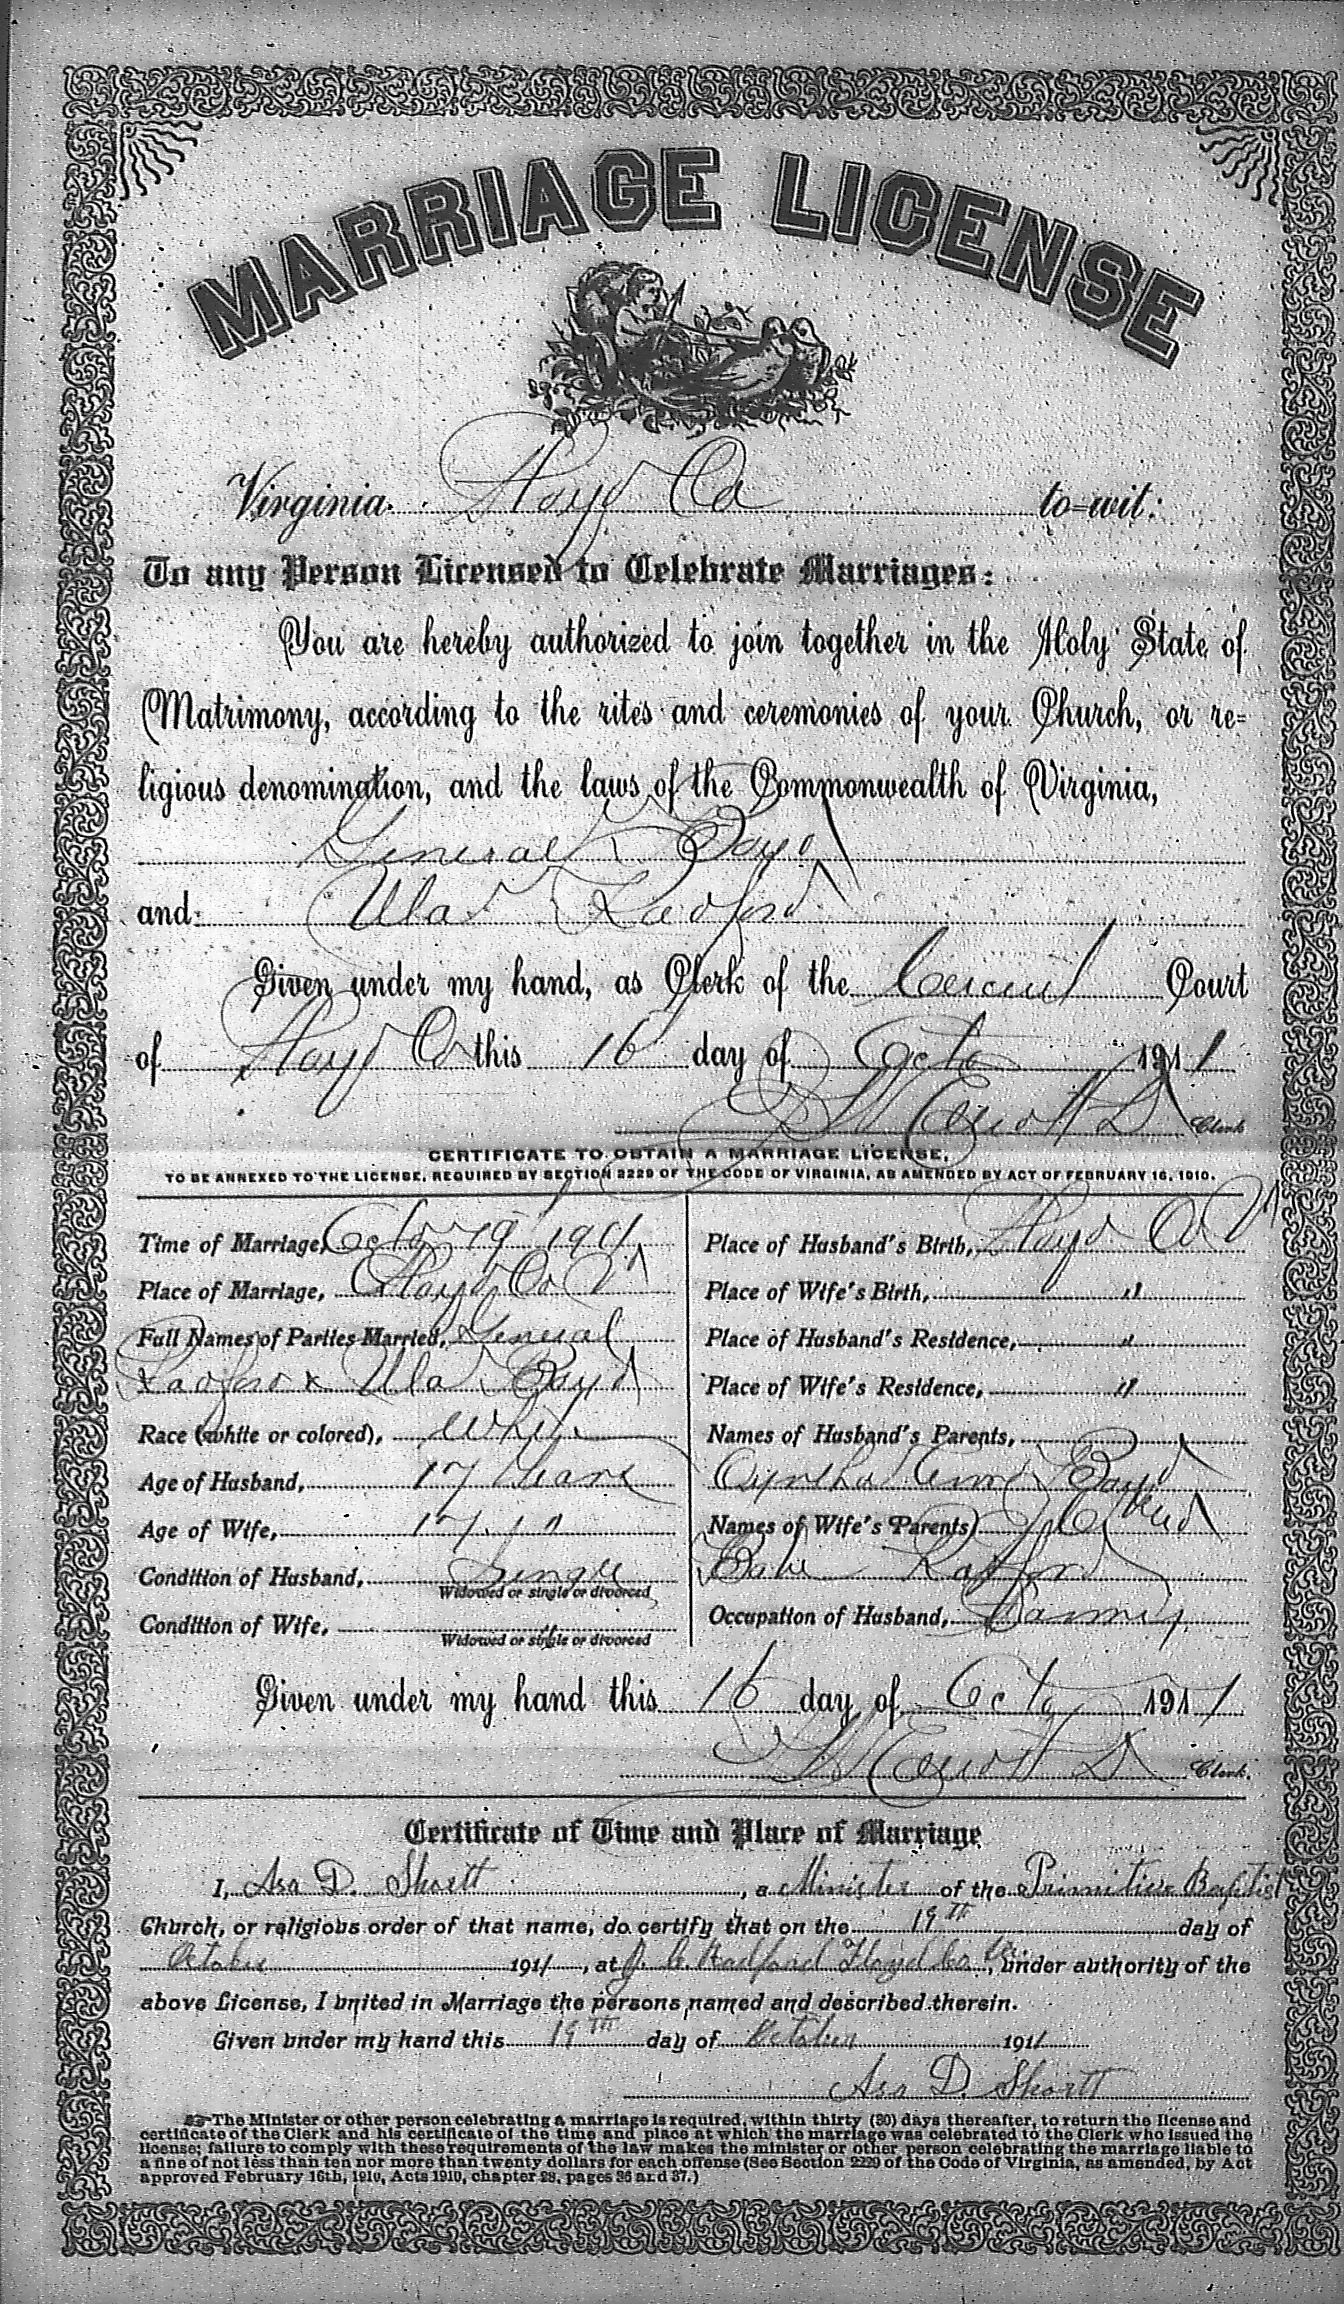 MARRIAGE LICENSE
Virginia. Floyd Co to-wit:
To any Person Licensed to Celebrate Marriages:
You are hereby authorized to join together in the Holy State of
Matrimony, according to the rites and ceremonies of your Church, or re-
ligious denomination, and the laws of the Commonwealth of Virginia,
General Boyd
and Ula Radford
Given under my hand, as Clerk of the Circuit Court
of Floyd Co this 16 day of Octo 1911
Clerk
CERTIFICATE TO OBTAIN A MARRIAGE LICENSE,
TO BE ANNEXED TO THE LICENSE, REQUIRED BY SECTION 2229 OF THE CODE OF VIRGINIA, AS AMENDED BY ACT OF FEBRUARY 16, 1910.
Time of Marriage, Octo 19 1911
Place of Marriage, Floyd Co Va
Full Names of Parties Married, General
Radford & Ula Boyd
Race (white or colored), White
Age of Husband, 17 Years
Age of Wife, 17 "
Condition of Husband, Single
Widowed or single or divorced
Condition of Wife, "
Widowed or single or divorced
Place of Husband's Birth, Floyd Co Va
Place of Wife's Birth, "
Place of Husband's Residence, "
Place of Wife's Residence, "
Names of Husband's Parents,
Cyntha Ann Boyd
Names of Wife's Parents
Radford
Occupation of Husband, Farming
Given under my hand this 16 day of Octo 1911
Clerk.
Certificate of Time and Place of Marriage
I, Asa D. Shortt, a Minister of the Primitive Baptist
Church, or religious order of that name, do certify that on the 19th day of
October 1911, at J. C. Radford Floyd Co Va, under authority of the
above License, I united in Marriage the persons named and described therein.
Given under my hand this 19th day of October 1911
Asa D. Shortt
The Minister or other person celebrating a marriage is required, within thirty (30) days thereafter, to return the license and
certificate of the Clerk and his certificate of the time and place at which the marriage was celebrated to the Clerk who issued the
license; failure to comply with these requirements of the law makes the minister or other person celebrating the marriage liable to
a fine of not less than ten nor more than twenty dollars for each offense (See Section 2229 of the Code of Virginia, as amended, by Act
approved February 16th, 1910, Acts 1910, chapter 28, pages 36 and 37.)